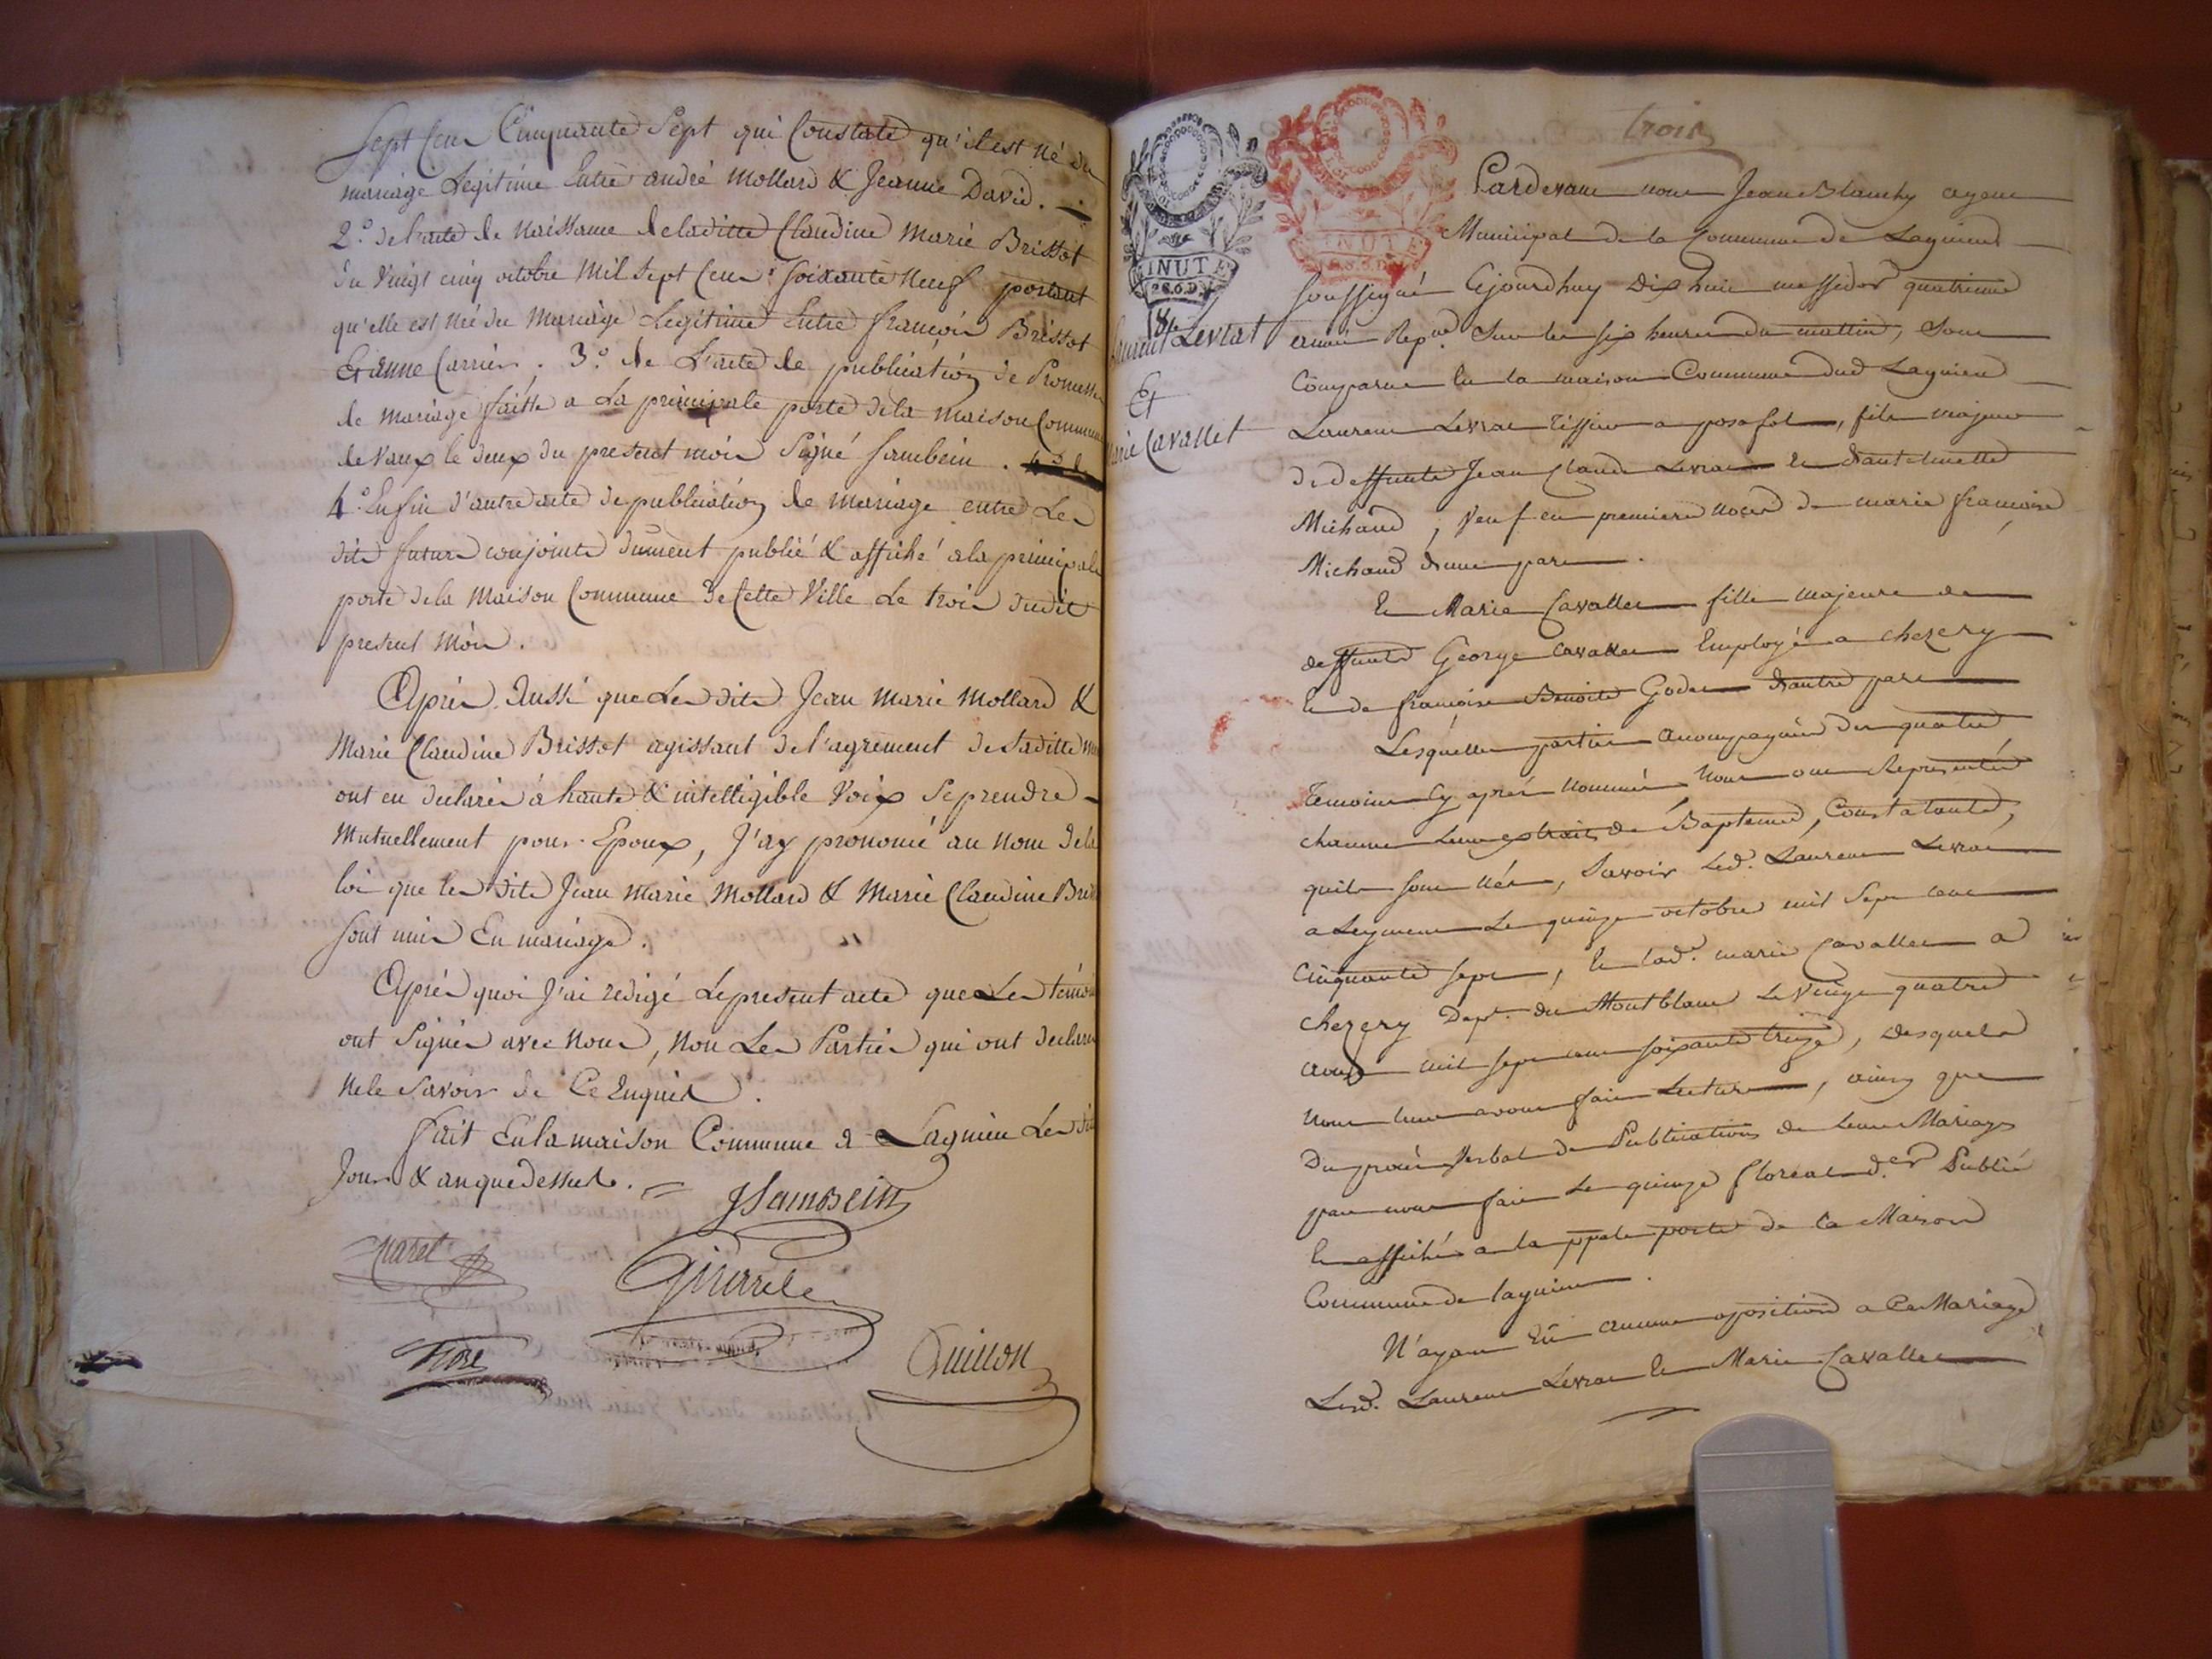 Sept Cens Cinquante Sept qui Constate qu'il est né du
mariage Legitime Entre andré Mollard & Jeanne David.
2.° de l'acte de Naissance de laditte Claudine Marie Brissot
du Vingt cinq octobre Mil Sept Cens Soixante Neuf portant
qu'elle est née du Mariage Legitime Entre françois Brissot
Et anne Carrier. 3.° de L'acte de publication de Promesse
de mariage faitte a La principale porte de la maison Commune
de Vaux le deux du present mois Signé Sambein.
4.° Enfin d'autre acte de publication de mariage entre Les
dits futurs conjoints dument publié & affiché a la principale
porte de la Maison Commune de Cette Ville Le trois dudit
present Mois.
Après Aussi que Les dits Jean Marie Mollard &
Marie Claudine Brissot agissant de l'agrément de Laditte
ont eu declarés à haute & intelligible Voix Se prendre
Mutuellement pour Epoux, J'ay prononcé au Nom de la
loi que les dits Jean Marie Mollard & Marie Claudine
Sont unis En mariage.
Après quoi J'ai redigé Le present acte que Les témoins
ont Signés avec Nous, Non Les Parties qui ont declaré
Ne le Savoir de Ce Enquis.
fait En la maison Commune de Lagnieu Les dits
Jour & an que dessus.
JSambein
Maret
Guillon
trois
Pardevant nous Jean Blanchy agent
Municipal de la Commune de Lagnieu
MINUTE
MINUTE
Soussigné Cejourdhuy Dix huit messidor quatrieme
année Rep.ne Sur les Six heures du mattin, Sont
Laurent Levrat
Et
Marie Cavallet
Comparus En la maison Commune dud Lagnieu
Laurent Levrat Tissier a posafol, fils majeur
de deffunts Jean Claude Levrat Et d'antelmette
Michaud, Veuf en premiere noces de marie françoise
Michaud d'une part.
Et Marie Cavallet fille majeure de
deffunts George Cavallet Employé a chezery
Et de françoise Benoite Godet d'autre part
Lesquelles parties accompagnées des quatre
Temoins Cy après nommés Nous ont Representés
chacuns Leurs extraits de Baptemes, Constatants,
quils sont nés, Savoir Led. Laurent Levrat
a Leyment Le quinze octobre mil Sept cent
Cinquante Sept, Et lad. marie Cavallet a
chezery Dep.t du Montblanc Le Vingt quatre
aoust mil sept cent soixante treize, desquels
Nous leur avons fait Lecture, ainsy que
Du procès Verbal de Publications de Leur Mariage
par nous fait Le quinze floreal d.er Publié
Et affiché a la pp.ale porte de la Maison
Commune de lagnieu.
N'ayant Eû aucune opposition a Ce Mariage
Lesd. Laurent Levrat Et Marie Cavallet